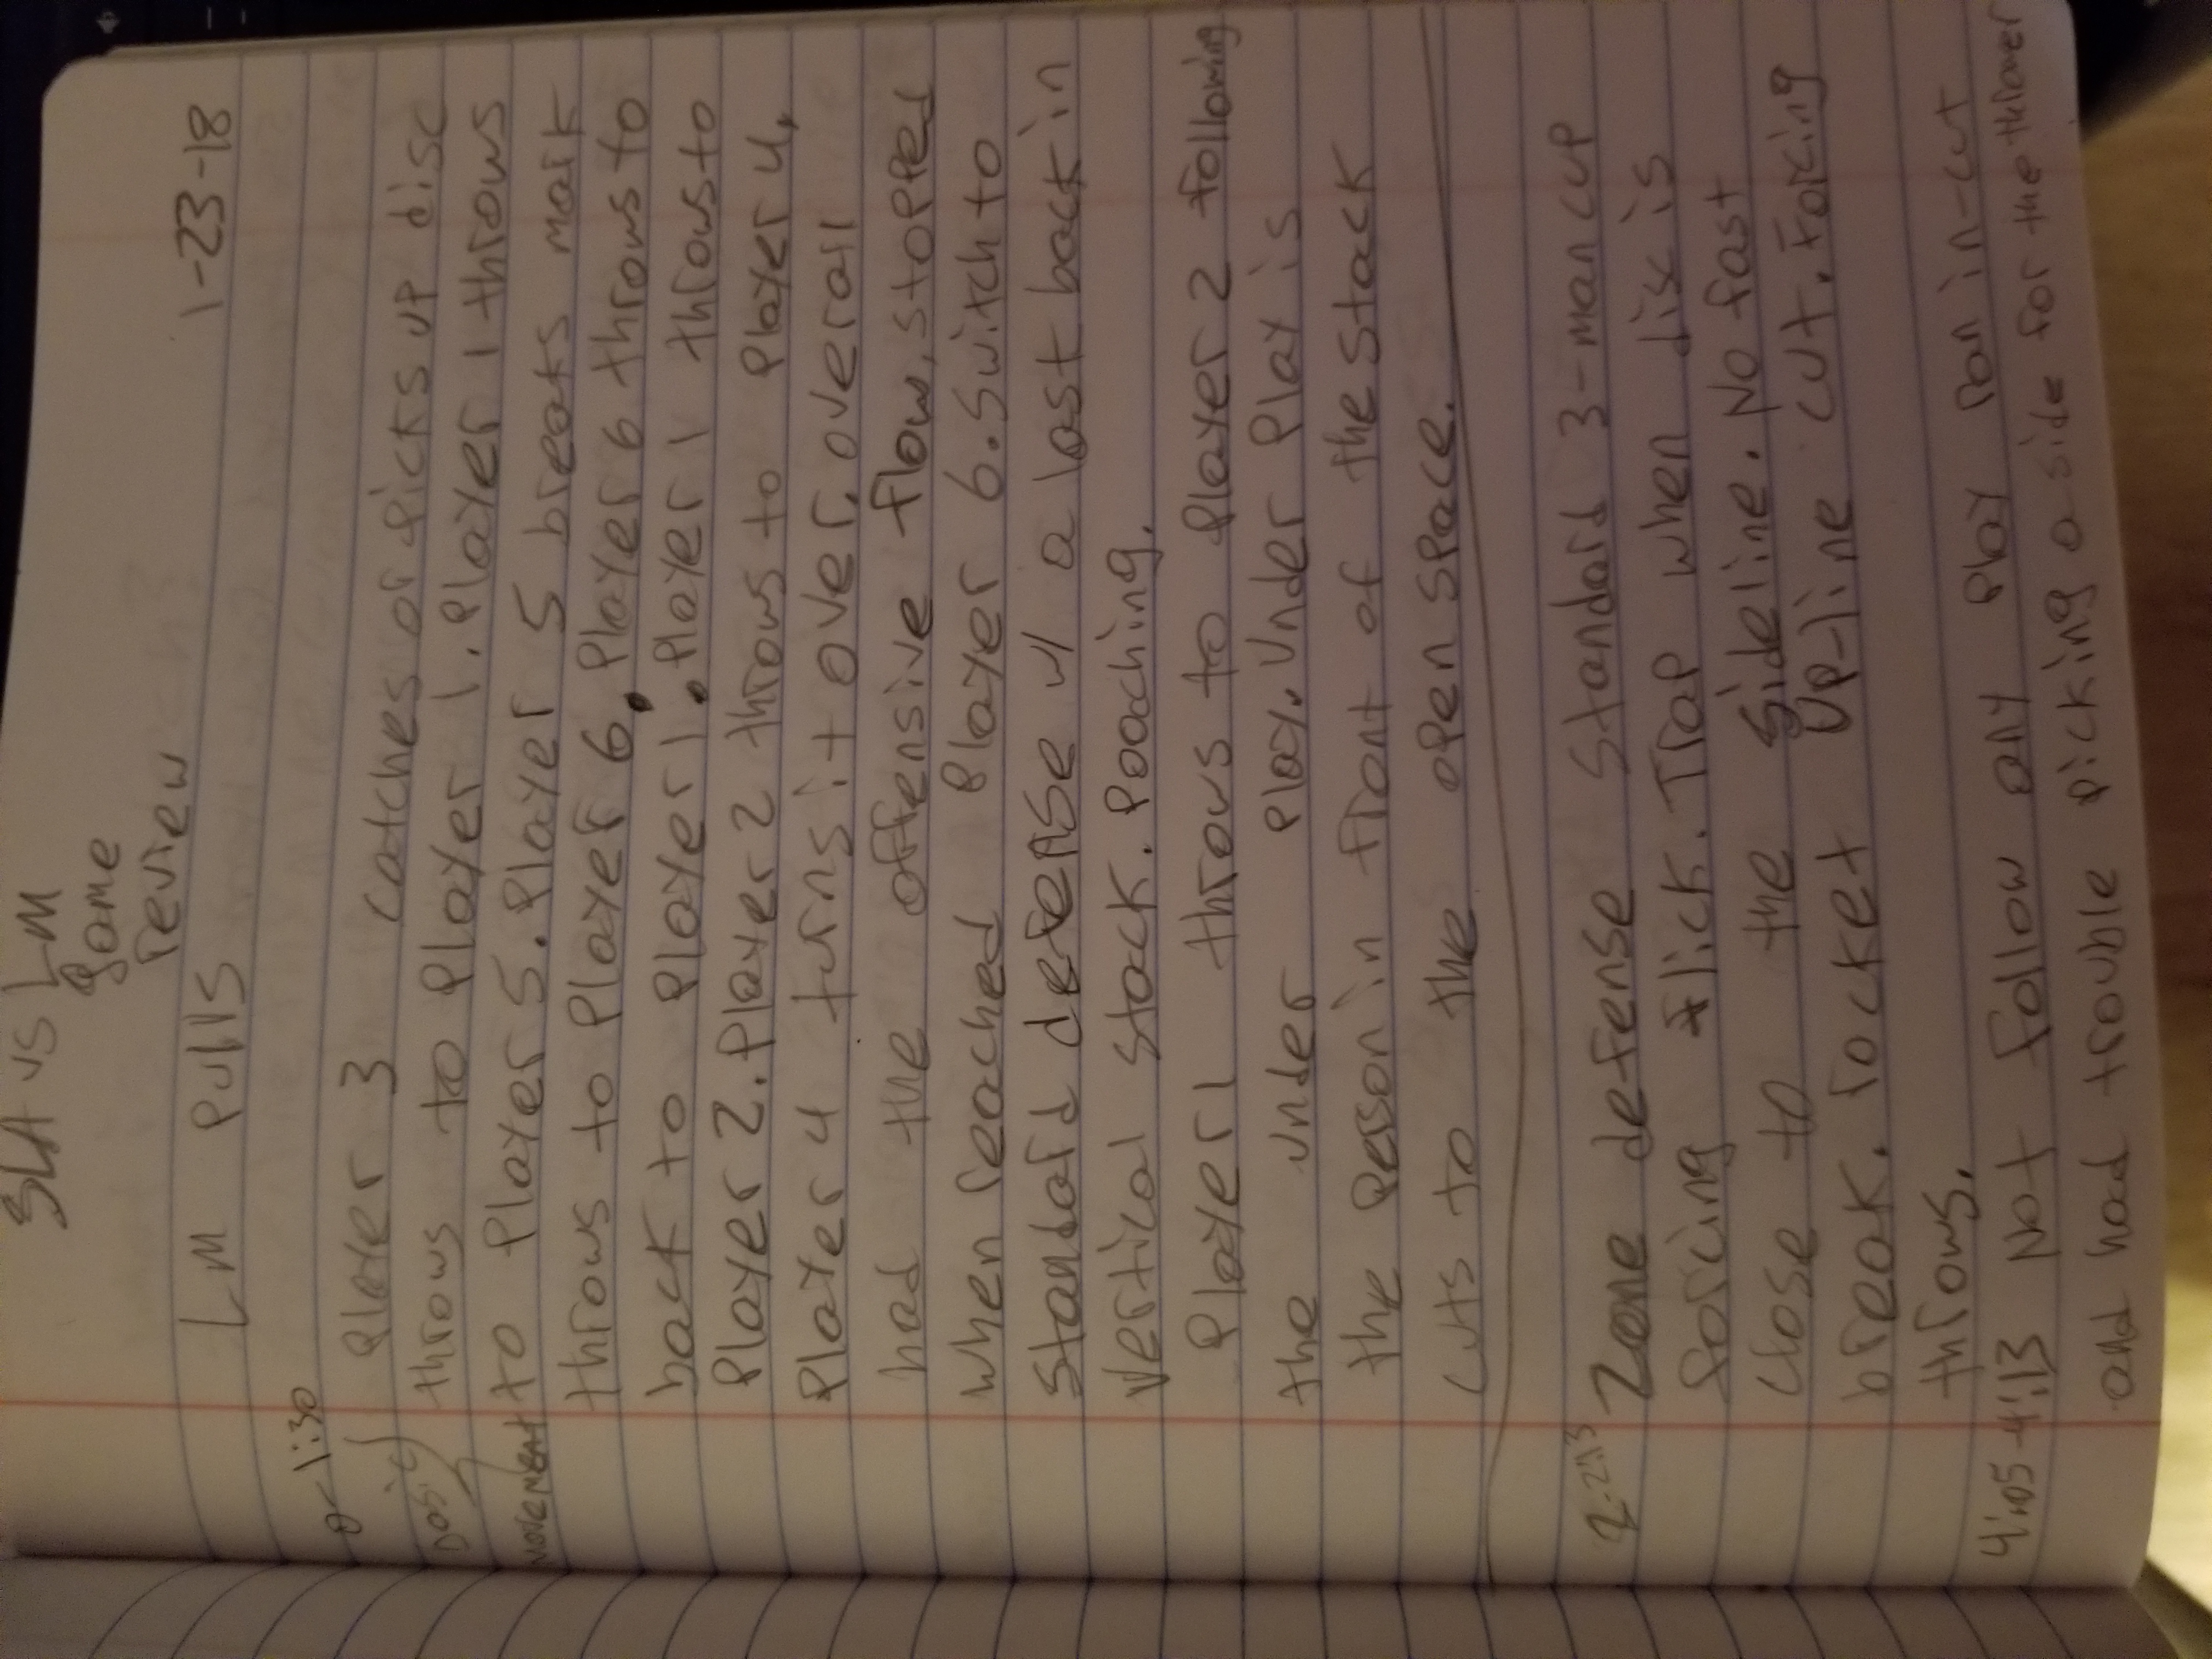 SLA vs LM
game
review
LM Pulls 1-23-18
0-1:30
Player 3 catches or picks up disc
basic) throws to Player 1. Player 1 throws
movement to Player 5. Player 5 breaks mark
throws to Player 6. Player 6 throws to
back to Player 1. Player 1 throws to
Player 2. Player 2 throws to Player 4.
Player 4 turns it over. overall
had the offensive flow, stopped
when reached Player 6. Switch to
standard defense w/ a last back in
Vertical stack. Poaching.
Player 1 throws to Player 2 following
the under Play. Under Play is
the person in front of the stack
cuts to the open space.
2:23 Zone defense standard 3-man cup
forcing flick. Trap when disc is
close to the sideline. No fast
break. rocket Up-line cut. Forcing
throws.
4:05-4:13 Not follow any play ran in-cut
and had trouble picking a side for the thrower